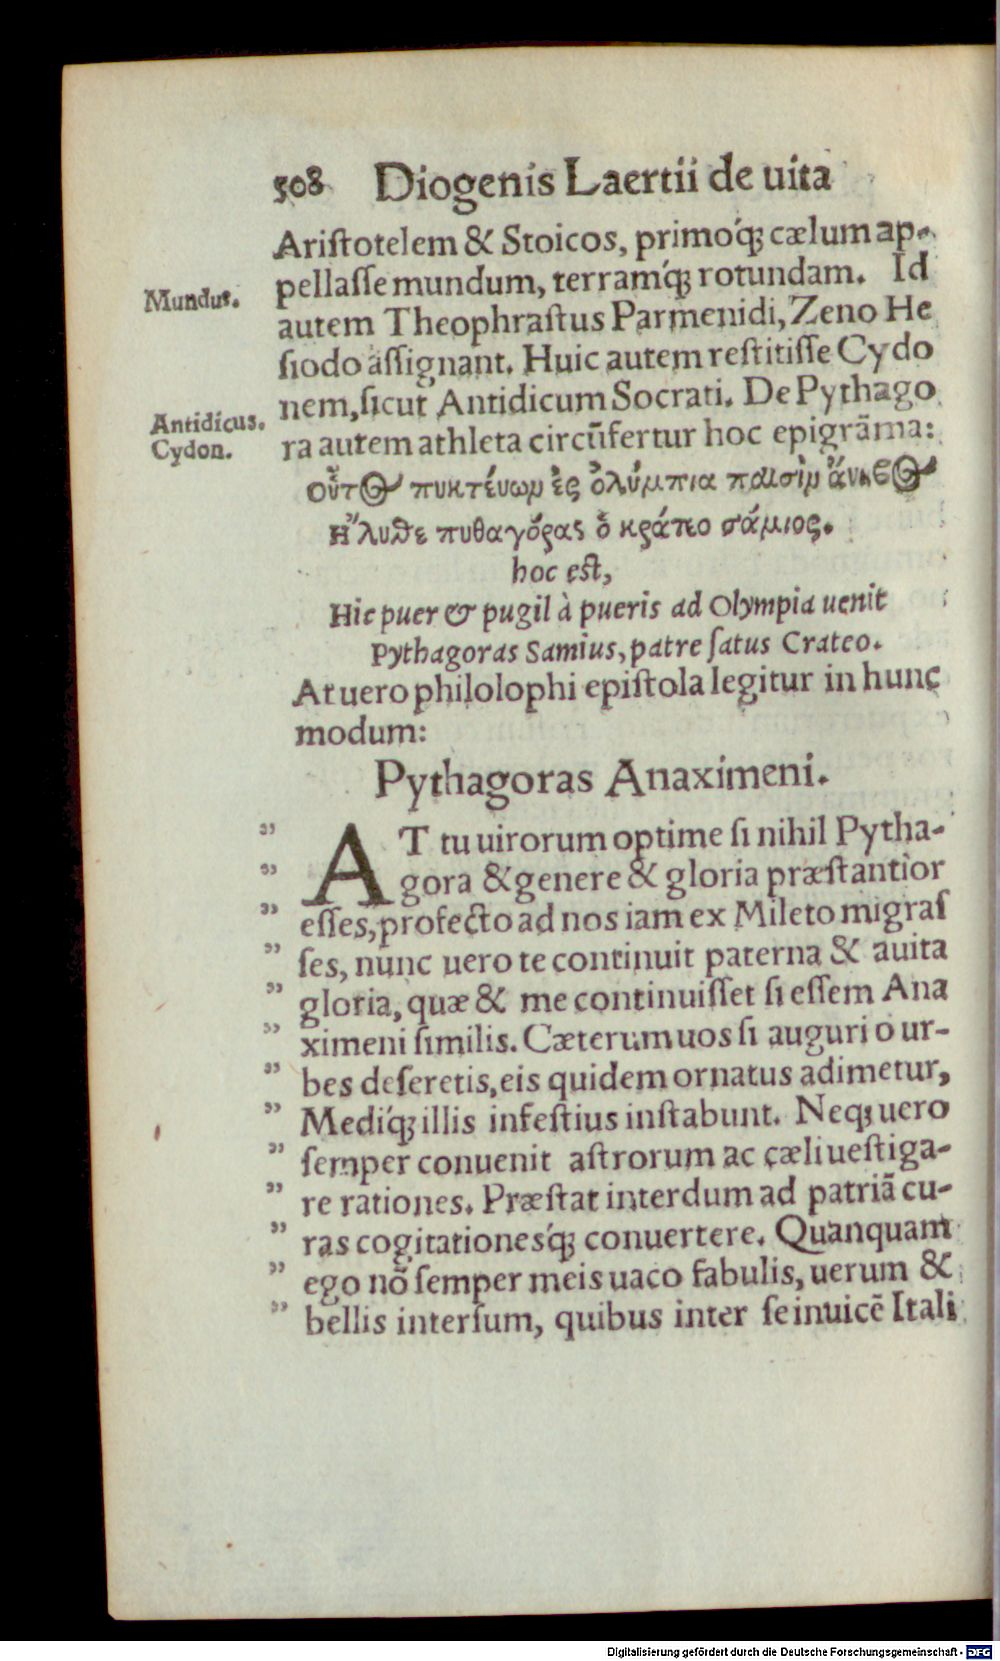 508 Diogenis Laertii de uita
Aristotelem & Stoicos, primoq́; cælum ap-
pellasse mundum, terramq́; rotundam. Id
Mundus.
autem Theophrastus Parmenidi, Zeno He
siodo assignant. Huic autem restitisse Cydo
nem, sicut Antidicum Socrati. De Pythago
Antidicus.
Cydon.
ra autem athleta circũfertur hoc epigrãma:
οὗτος πυκτέυσων ἐς ὀλύμπια παισὶν ἄνηβος
Ηʼλυθε πυθαγόρας ὁ κράτεο σάμιος.
hoc est,
Hic puer & pugil à pueris ad Olympia uenit
Pythagoras Samius, patre satus Crateo.
At uero philolophi epistola legitur in hunc
modum:
Pythagoras Anaximeni.
„ AT tu uirorum optime si nihil Pytha-
„ gora & genere & gloria præstantior
„ esses, profecto ad nos iam ex Mileto migras
„ ses, nunc uero te continuit paterna & auita
„ gloria, quæ & me continuisset si essem Ana
„ ximeni similis. Cæterum uos si auguri o ur-
„ bes deseretis, eis quidem ornatus adimetur,
„ Mediq́; illis infestius instabunt. Neq; uero
„ semper conuenit astrorum ac cæli uestiga-
„ re rationes. Præstat interdum ad patriã cu-
„ ras cogitationesq́; conuertere. Quanquam
„ ego nõ semper meis uaco fabulis, uerum &
„ bellis intersum, quibus inter se inuicẽ Itali
Digitalisierung gefördert durch die Deutsche Forschungsgemeinschaft - DFG